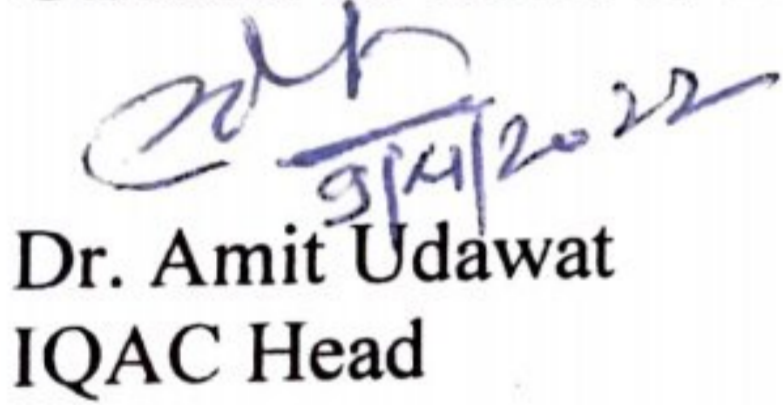 9/4/2022
Dr. Amit Udawat
IQAC Head